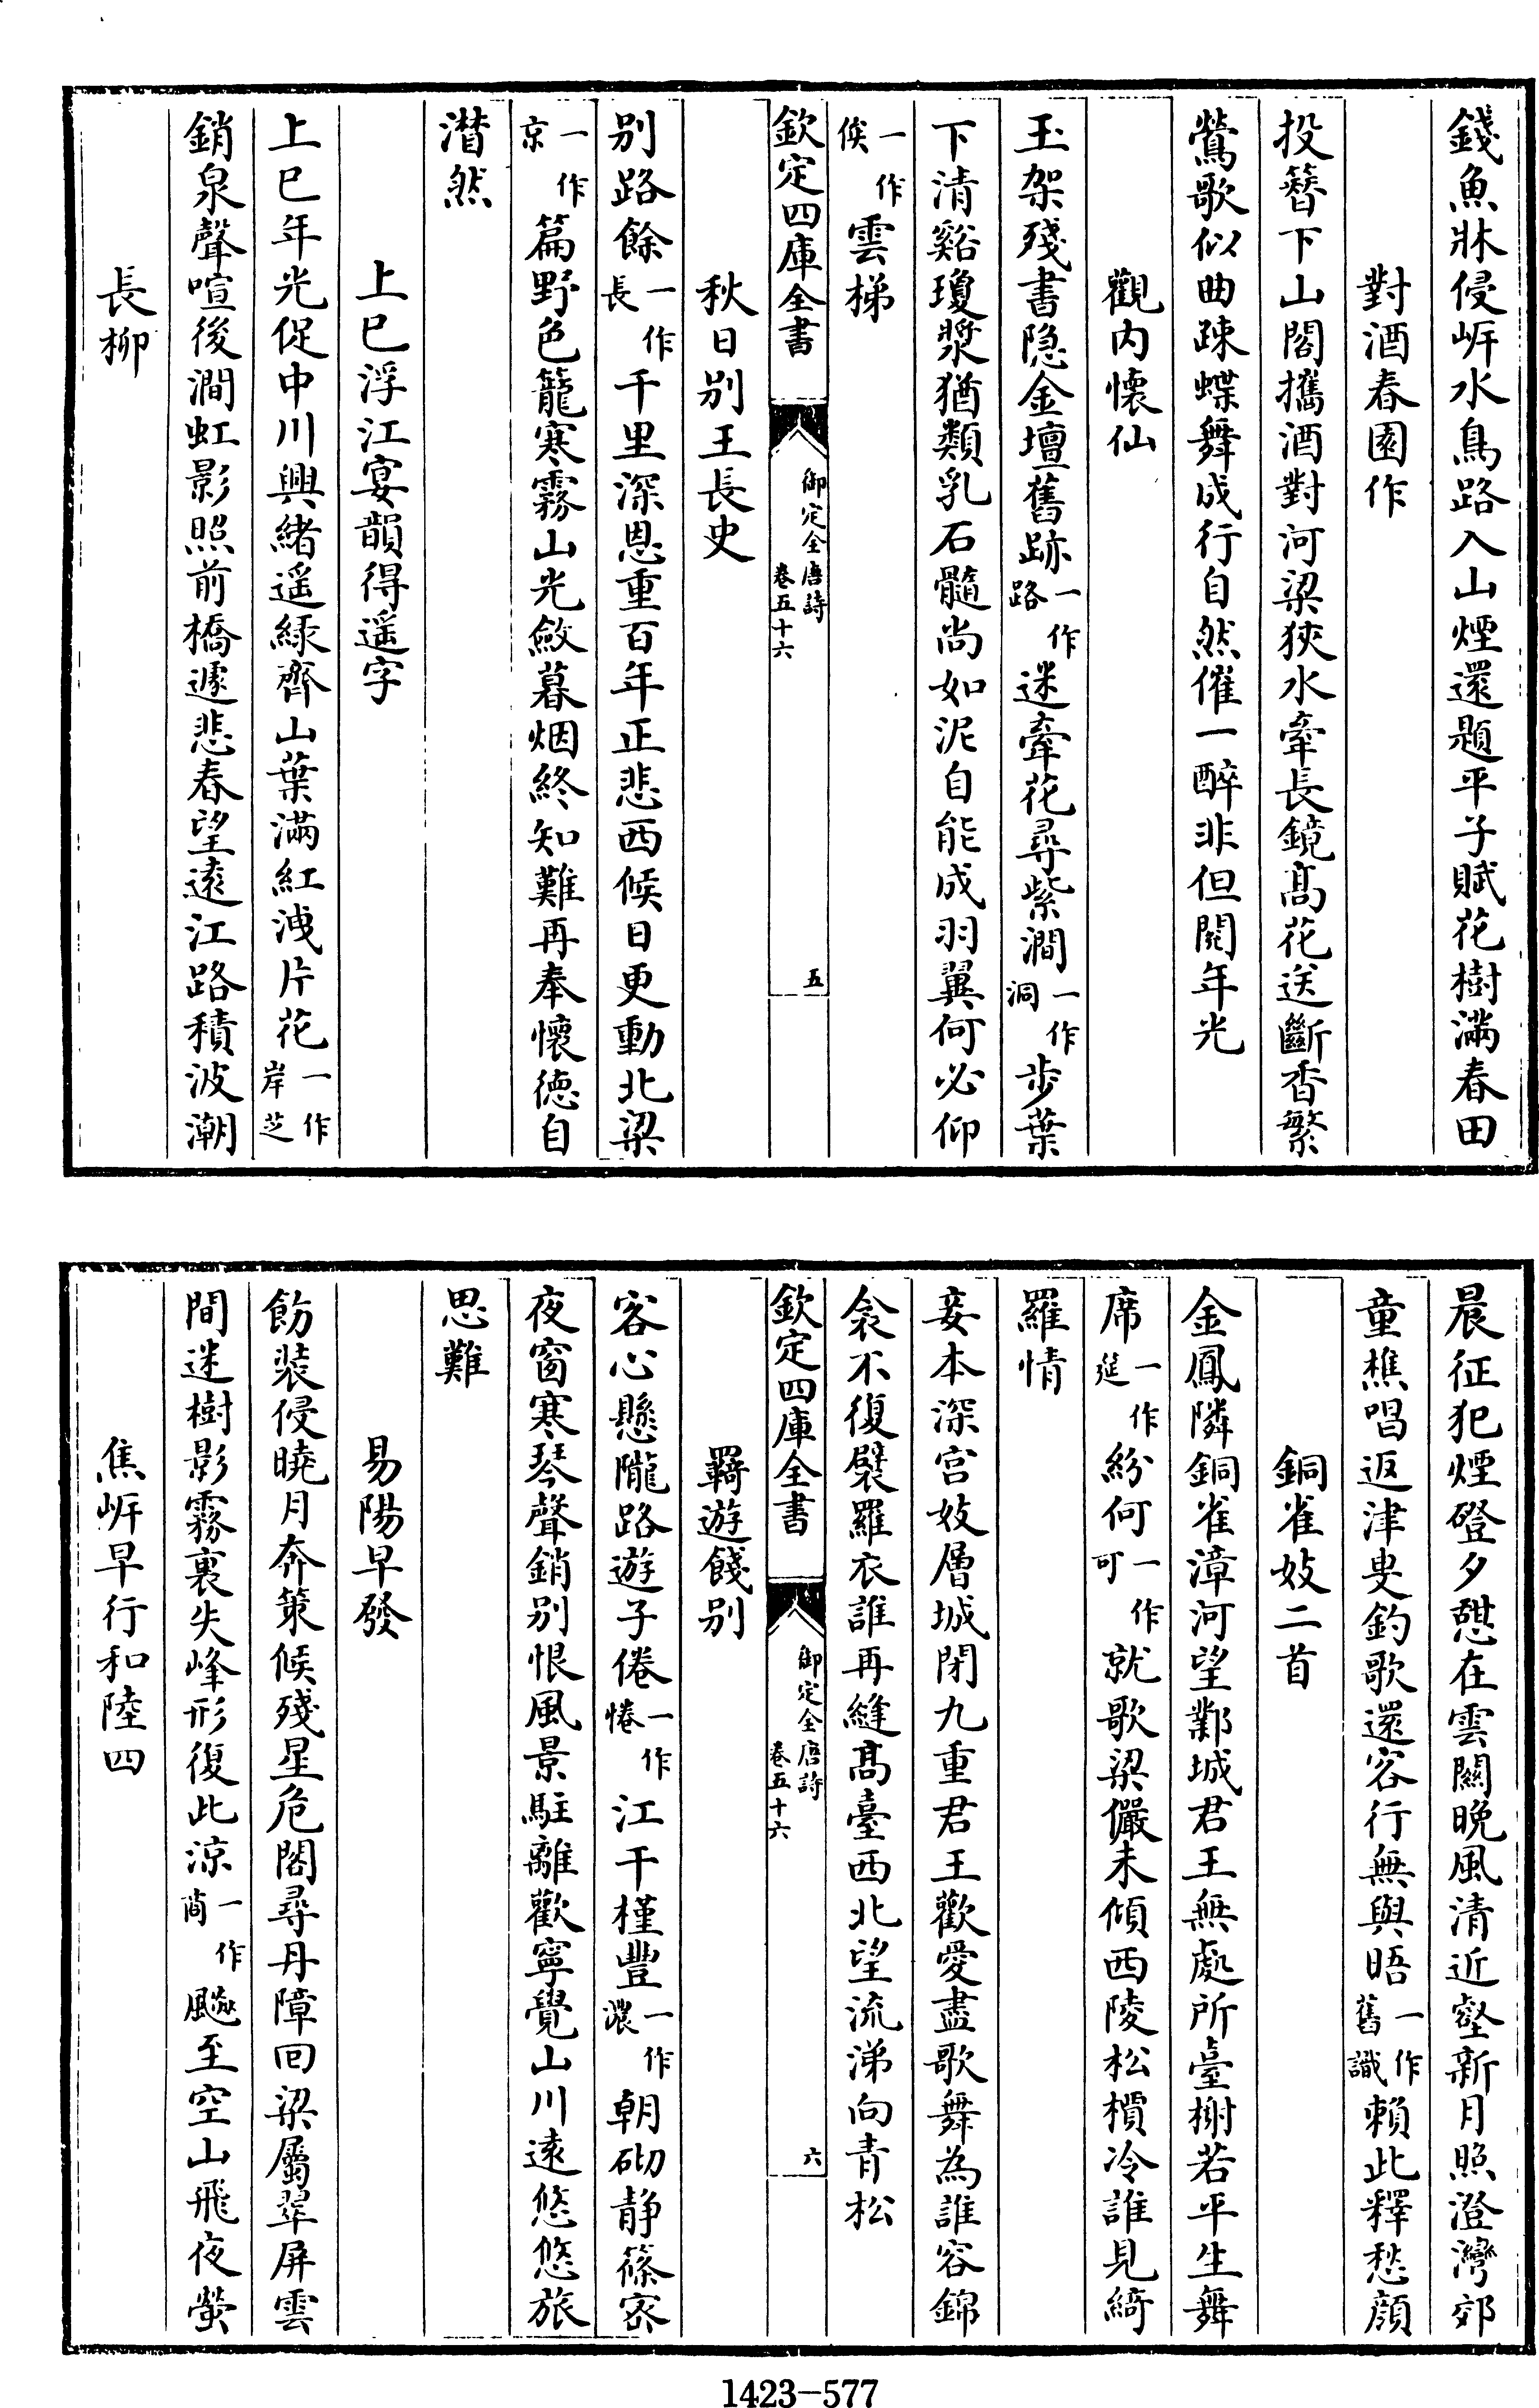 錢魚牀侵岍水鳥路入山煙還題平子賦花樹滿春田
對酒春園作
投簪下山閣攜酒對河梁狹水牽長鏡髙花送斷香繁
鶯歌似曲疎蝶舞成行自然催一醉非但閱年光
觀内懷仙
玉架殘書隐金壇舊跡一作路迷牽花尋紫澗一作洞步葉
下清谿瓊漿猶類乳石髓尚如泥自能成羽翼何必仰
一作俟雲梯
欽定四庫全書
御定全唐詩
卷五十六
五
秋日别王長史
别路餘一作長千里深恩重百年正悲西候日更動北梁
一作京篇野色籠寒霧山光斂暮烟終知難再奉懷德自
潸然
上巳浮江宴韻得遥字
上巳年光促中川興緒遥緑齊山葉滿紅洩片花一作岸芝
銷泉聲喧後澗虹影照前橋遽悲春望遠江路積波潮
長柳
晨征犯煙磴夕憇在雲關晩風清近壑新月照澄灣郊
童樵唱返津叟釣歌還客行無與晤一作舊識賴此釋愁顔
銅雀妓二首
金鳳隣銅雀漳河望鄴城君王無處所臺榭若平生舞
席一作筵紛何一作可就歌梁儼未傾西陵松檟冷誰見綺
羅情
妾本深宫妓層城閉九重君王歡愛盡歌舞為誰容錦
衾不復襞羅衣誰再縫髙臺西北望流涕向青松
欽定四庫全書
御定全唐詩
卷五十六
六
羇遊餞别
客心懸隴路遊子倦一作惓江干槿豐一作濃朝砌静篠宻
夜窗寒琴聲銷别恨風景駐離歡寧覺山川遠悠悠旅
思難
易陽早發
飭装侵曉月奔策候殘星危閣尋丹障回梁屬翠屏雲
間迷樹影霧裏失峰形復此涼一作商飈至空山飛夜螢
焦岍早行和陸四
1423-577